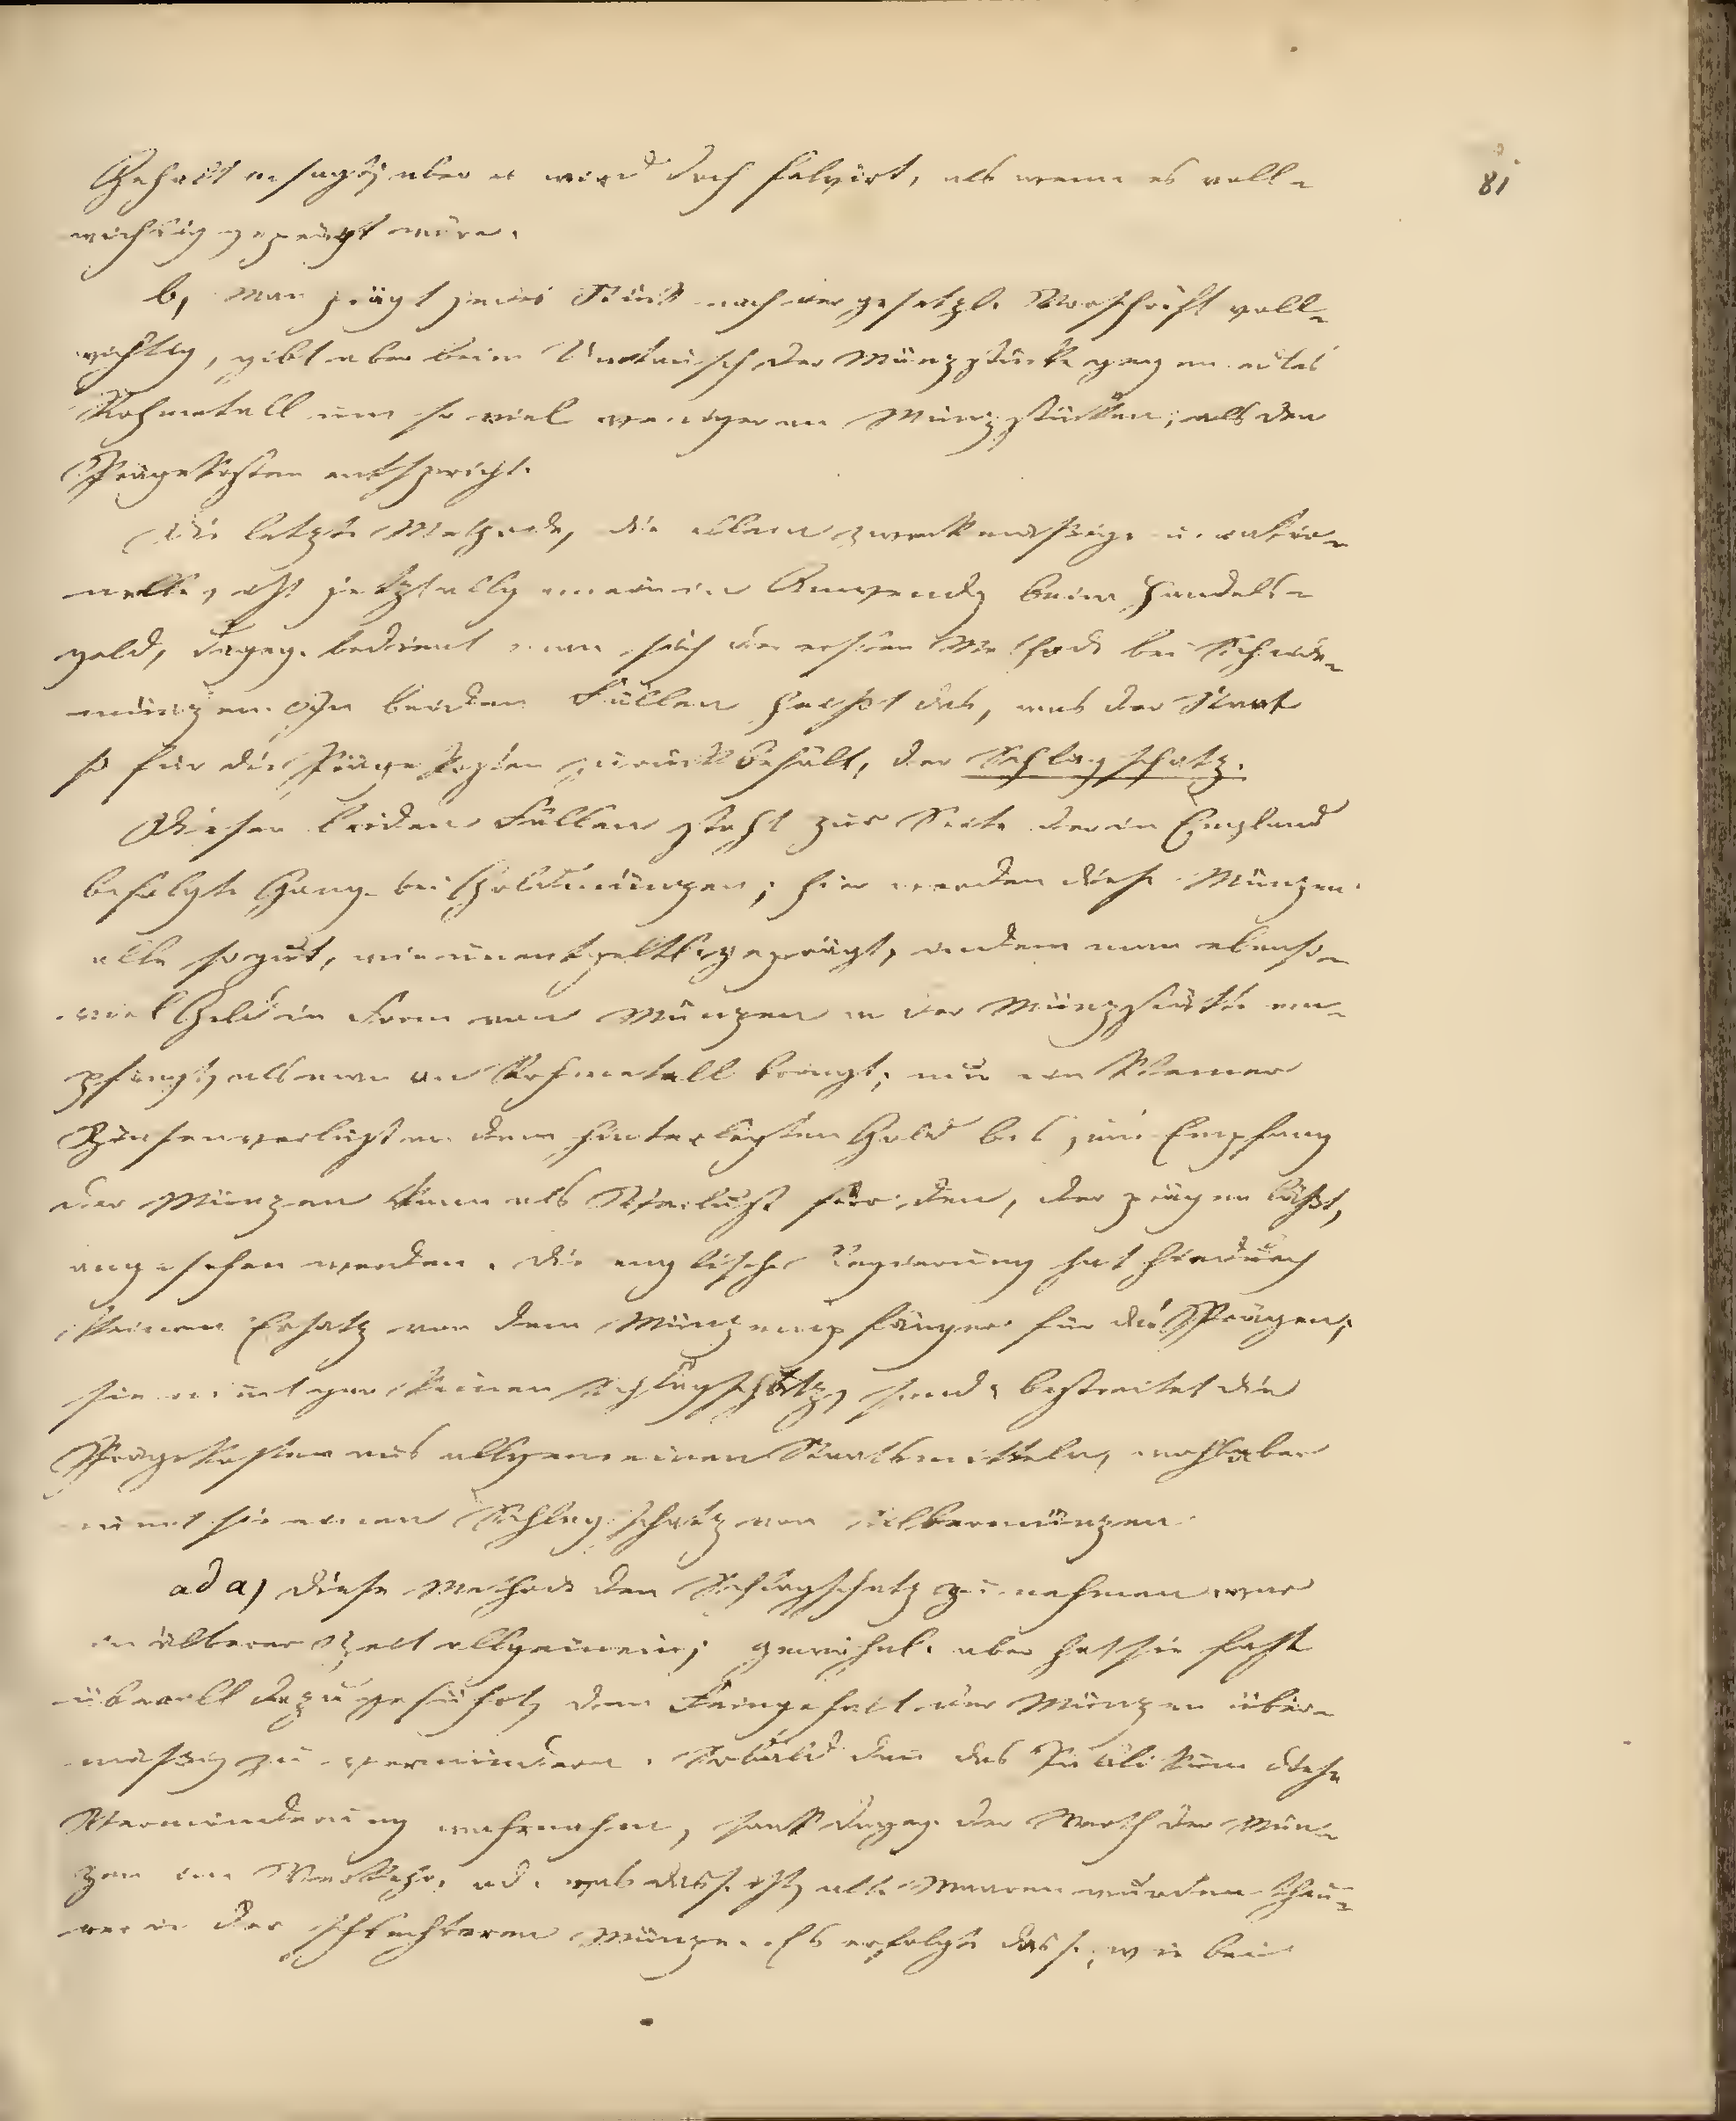 81
Gehalt u sagt, aber es wird doch salvirt, als wenn es voll-
wichtig geprägt wäre.
b, Man prägt jedes Stück nach der gesetzl. Vorschrift voll-
wichtig, gibt aber beim Umtausch der Münzstücke gegen edles
Rohmetall um so viel weniger an Münzstücken, als den
Prägekosten entspricht.
Die letzte Methode, die allein zweckmässige u. ratio-
nelle, ist jetzt allgemein in Anwendg beim Handels-
geld, dageg. bedient man sich der ersten Methode bei Scheide-
münzen. In beiden Fällen heisst das, was der Staat
so für die Prägekosten zurückbehält, der Schlagschatz.
Diesen beiden Fällen steht zur Seite der in England
befolgte Gang bei Goldmünzen; hier werden diese Münzen
alle so gut, wie unentgeltlich geprägt, indem man ebenso-
viel Geld in Form von Münzen in der Münzstätte em-
pfängt, als man an Rohmetall bringt; nur ein kleiner
Zinsenverlust an dem hinterlegten Gold bis zum Empfang
der Münzen kann als Verlust für den, der prägen lässt,
angesehen werden. Die englische Regierung hat hiedurch
keinen Ersatz von dem Münzempfänger für die Prägung;
sie nimt gar keinen Schlagschatz, sond. bestreitet die
Prägekosten aus allgemeinen Staatsmitteln, wohl aber
nimt sie einen Schlagschatz von Silbermünzen.
ad a) Diese Methode den Schlagschatz zu nehmen war
in älterer Zeit allgemein; gewöhnl. aber hat sie fast
überall dazu geführt, den Feingehalt der Münzen über-
mässig zu vermindern. Sobald den das Publikum diese
Verminderung wahrnahm, sank dageg. der Werth der Mün-
zen im Verkehr, od. was dass. ist, alle Waaren wurden theu-
rer in der schlechteren Münze. Es erfolgte dass., wie bei